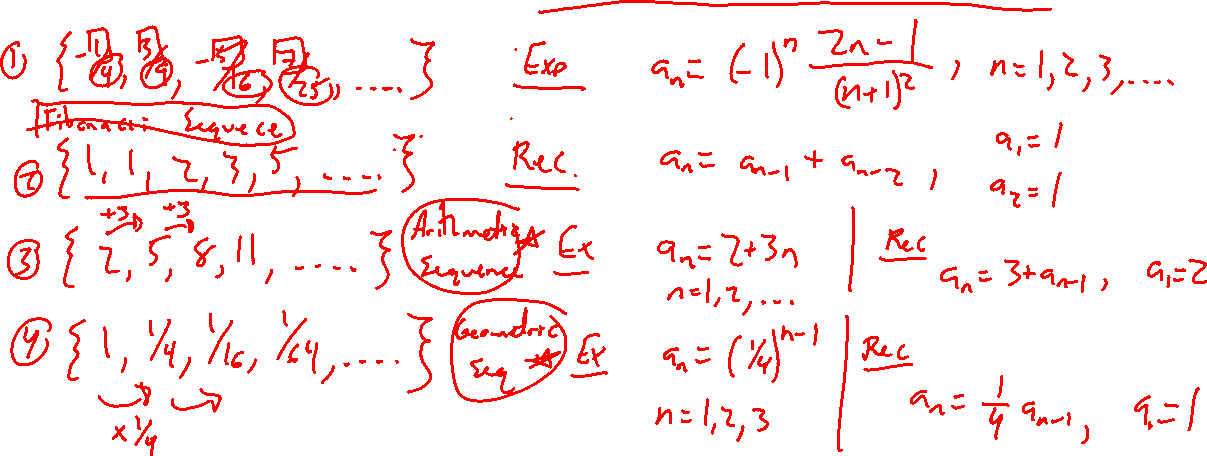 ① { -1/4, 3/9, -5/16, 7/25, ..... } Exp aₙ = (-1)ⁿ (2n-1)/(n+1)², n=1,2,3,....
Fibonacci Sequence
② { 1, 1, 2, 3, 5, ..... } Rec. aₙ = aₙ₋₁ + aₙ₋₂, a₁=1 a₂=1
+3 +3
③ { 2, 5, 8, 11, ..... } Arithmetic Sequence Ex aₙ = 2+3n n=1,2,... Rec aₙ = 3+aₙ₋₁, a₁=2
④ { 1, 1/4, 1/16, 1/64, ..... } Geometric Seq Ex aₙ = (1/4)ⁿ⁻¹ n=1,2,3 Rec aₙ = 1/4 aₙ₋₁, a₁=1
x 1/4